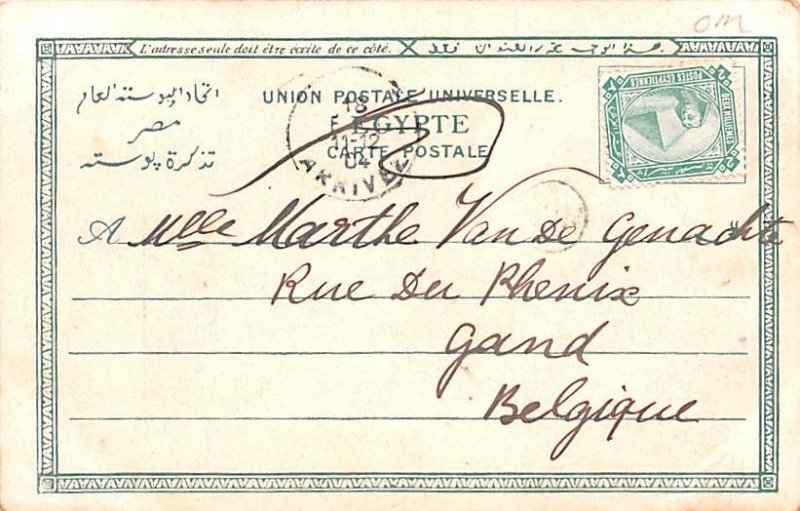 om
L'adresse seule doit être écrite de ce côté.
هذا الوجه مخصوص للعنوان فقط
اتحاد البوسته العام
مصر
تذكرة بوسته
UNION POSTALE UNIVERSELLE.
EGYPTE
CARTE POSTALE
18
11-12
04
ARRIVÉE
POSTES EGYPTIENNES
DEUX MILLIEMES
2
2
A Mlle Marthe Van De Genachte
Rue Du Phenix
Gand
Belgique